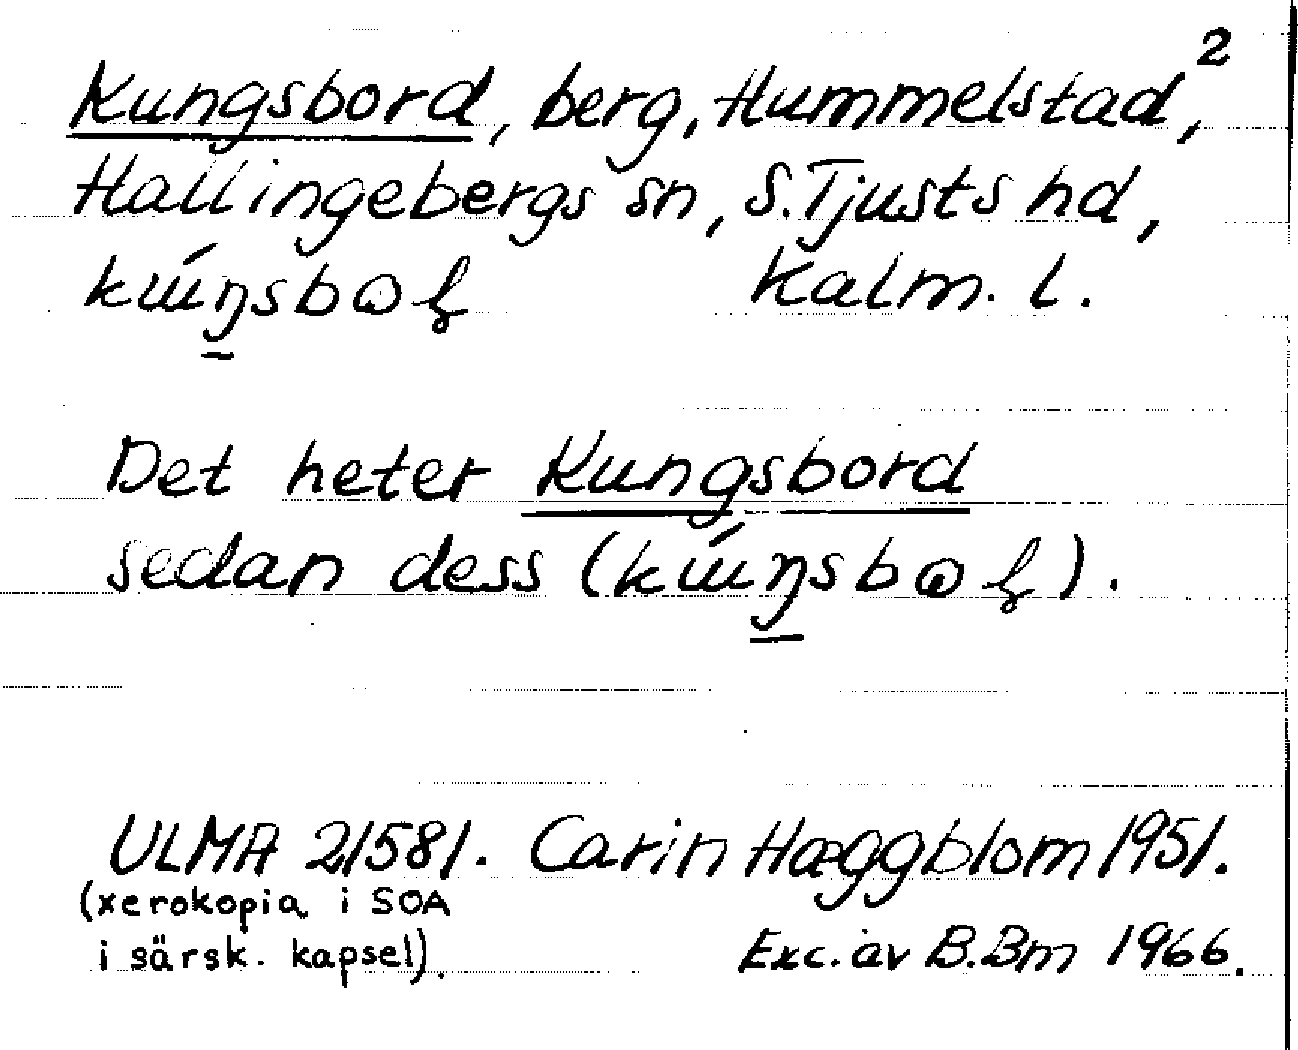 2
Kungsbord, berg, Hummelstad,
Hallingebergs sn, S. Tjusts hd,
Kalm. l.
Det heter Kungsbord
sedan dess
ULMA 21581. Carin Hæggblom 1951.
(xerokopia i SOA
i särsk. kapsel).
Exc. av B. Bm 1966.